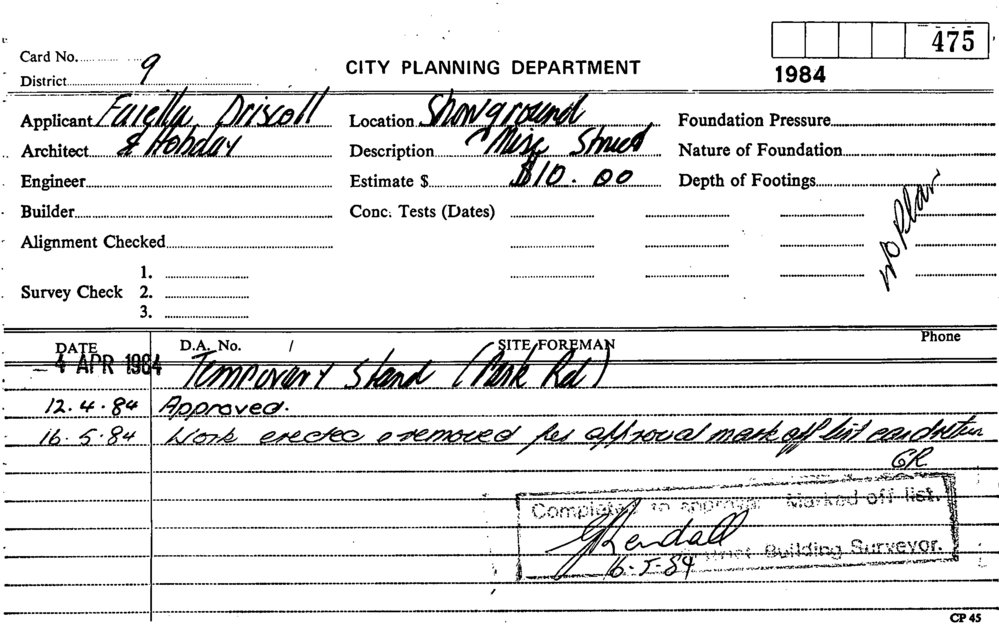 475
Card No. 9
CITY PLANNING DEPARTMENT
1984
District
Applicant Faiella Driscoll Location Showground Foundation Pressure
Architect & Hobday Description Misc Struct Nature of Foundation
Engineer Estimate $ $10.00 Depth of Footings
Builder Conc. Tests (Dates)
No Plan
Alignment Checked
1.
Survey Check 2.
3.
DATE D.A. No. / SITE FOREMAN Phone
- 4 APR 1984 Temporary Stand (Park Rd)
12.4.84 Approved.
16.5.84 Work erected & removed per approval mark off list card
GR
Completed to approval. Marked off list.
GRendall
District Building Surveyor.
16-5-84
CP 45